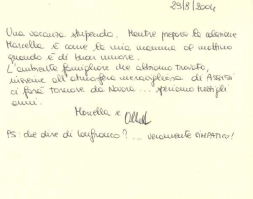 29/8/2004
Una vacanza stupenda. Mentre preparo la colazione
Marcella è come la mia mamma al mattino
quando è di buon umore.
L'ambiente famigliare che abbiamo trovato,
insieme all'atmosfera meravigliosa di Assisi
ci farà tornare da Navarra ... speriamo tutti gli
anni.
Marcella e
PS: che dire di Gianfranco? ... veramente SIMPATICO!